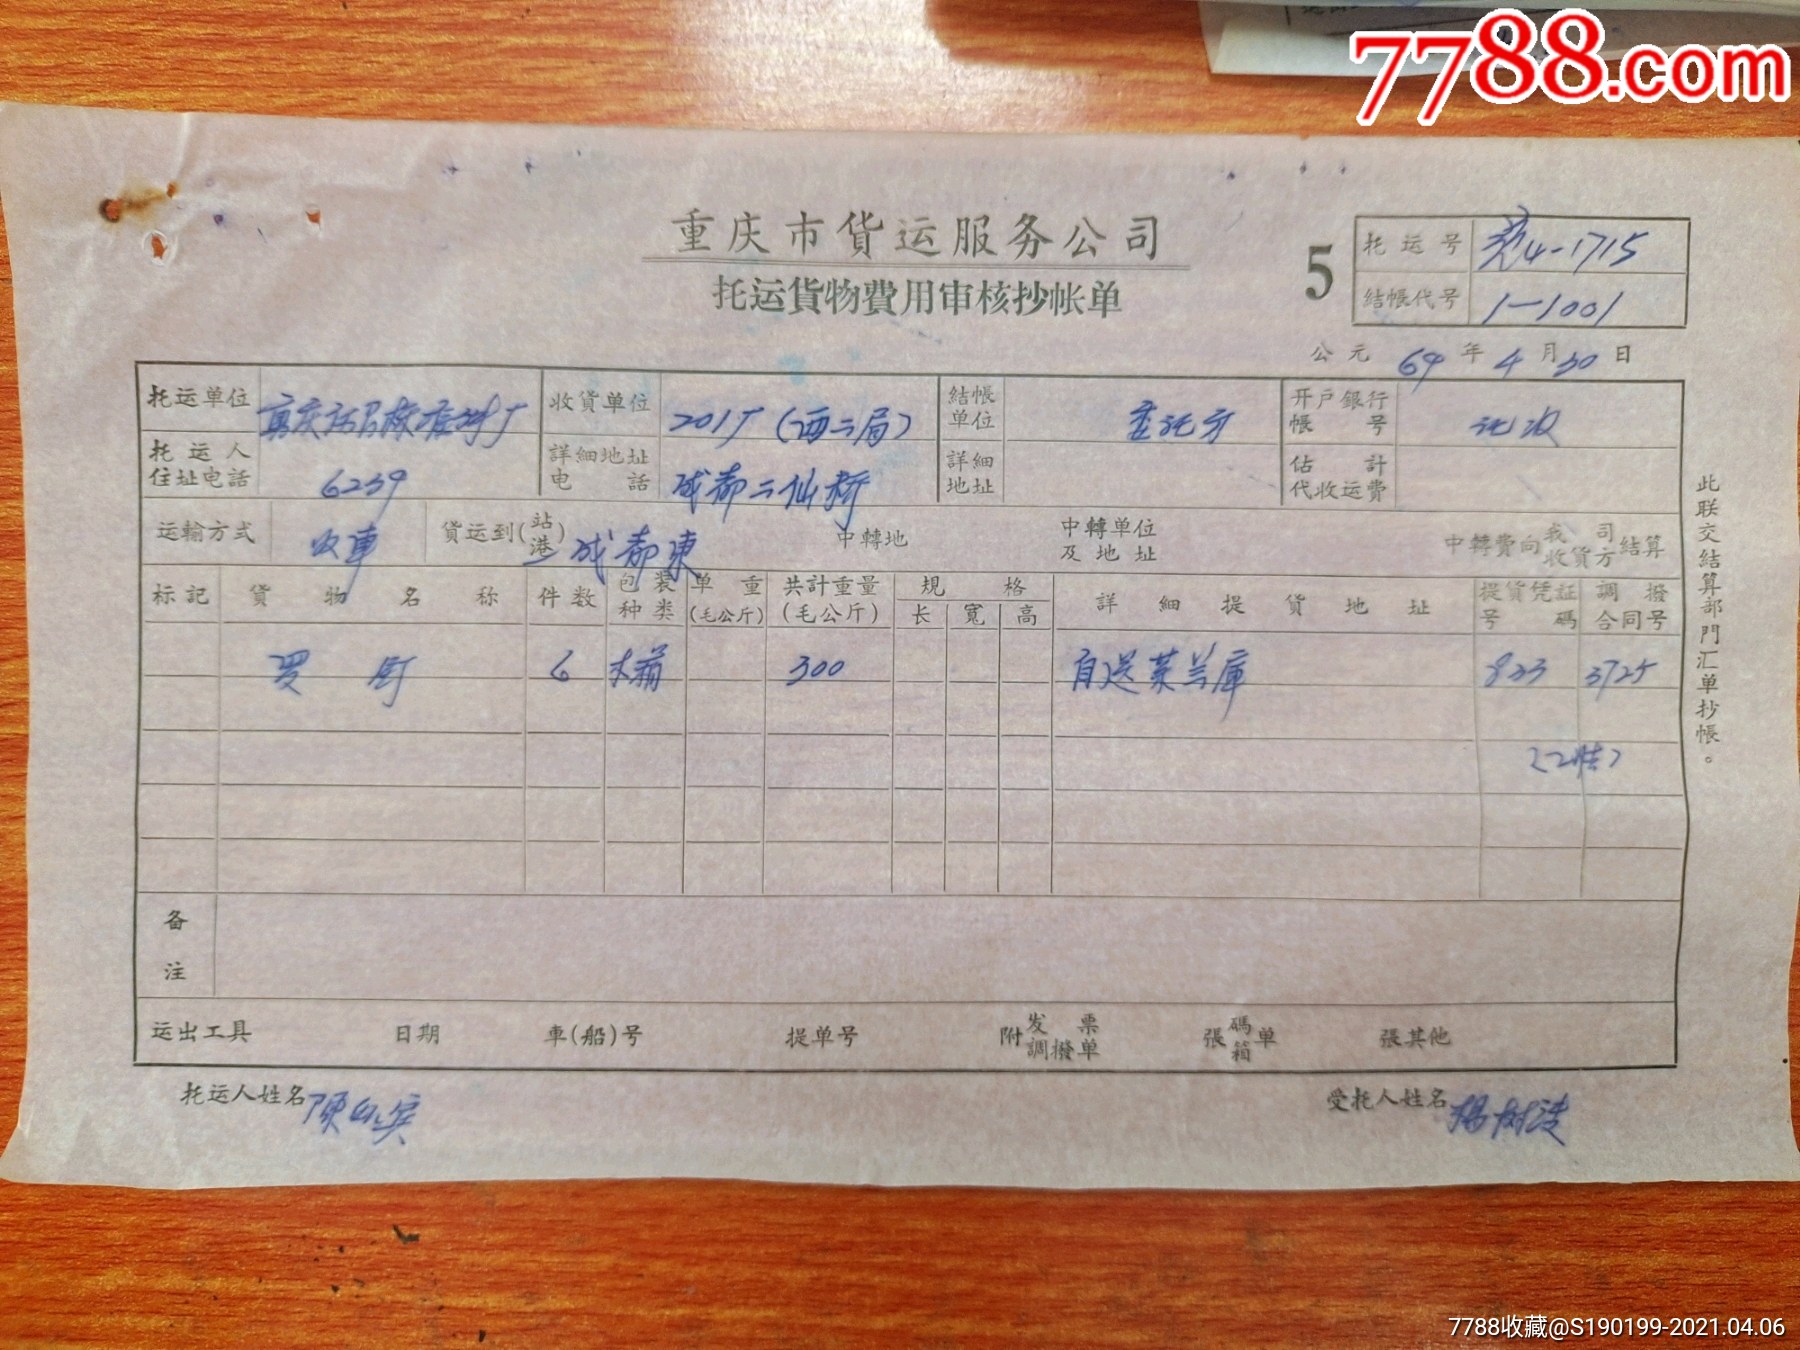 7788.com
重庆市貨运服务公司
托运貨物費用审核抄帐单
5
托运号 4-1715
結帳代号 1-1001
公元 64 年 4 月 30 日
托运单位 收貨单位 201厂(西二局) 結帳单位 委託方 开戶銀行帳号
托运人住址电話 6239 詳細地址电話 成都二仙桥 詳細地址 估計代收运費
运輸方式 火車 貨运到(站港) 成都東 中轉地 中轉单位及地址 中轉費向我司收貨方結算
标記 貨物名称 件数 包装种类 单重(毛公斤) 共計重量(毛公斤) 規格 长 寬 高 詳細提貨地址 提貨凭証号碼 調撥合同号
罗 釘 6 木箱 300 自送菜兰庫 833 3725
备注
运出工具 日期 車(船)号 提单号 附发票調撥单 張碼箱单 張其他
托运人姓名 陳
受托人姓名 楊树
此联交結算部門汇单抄帳。
7788收藏@S190199-2021.04.06